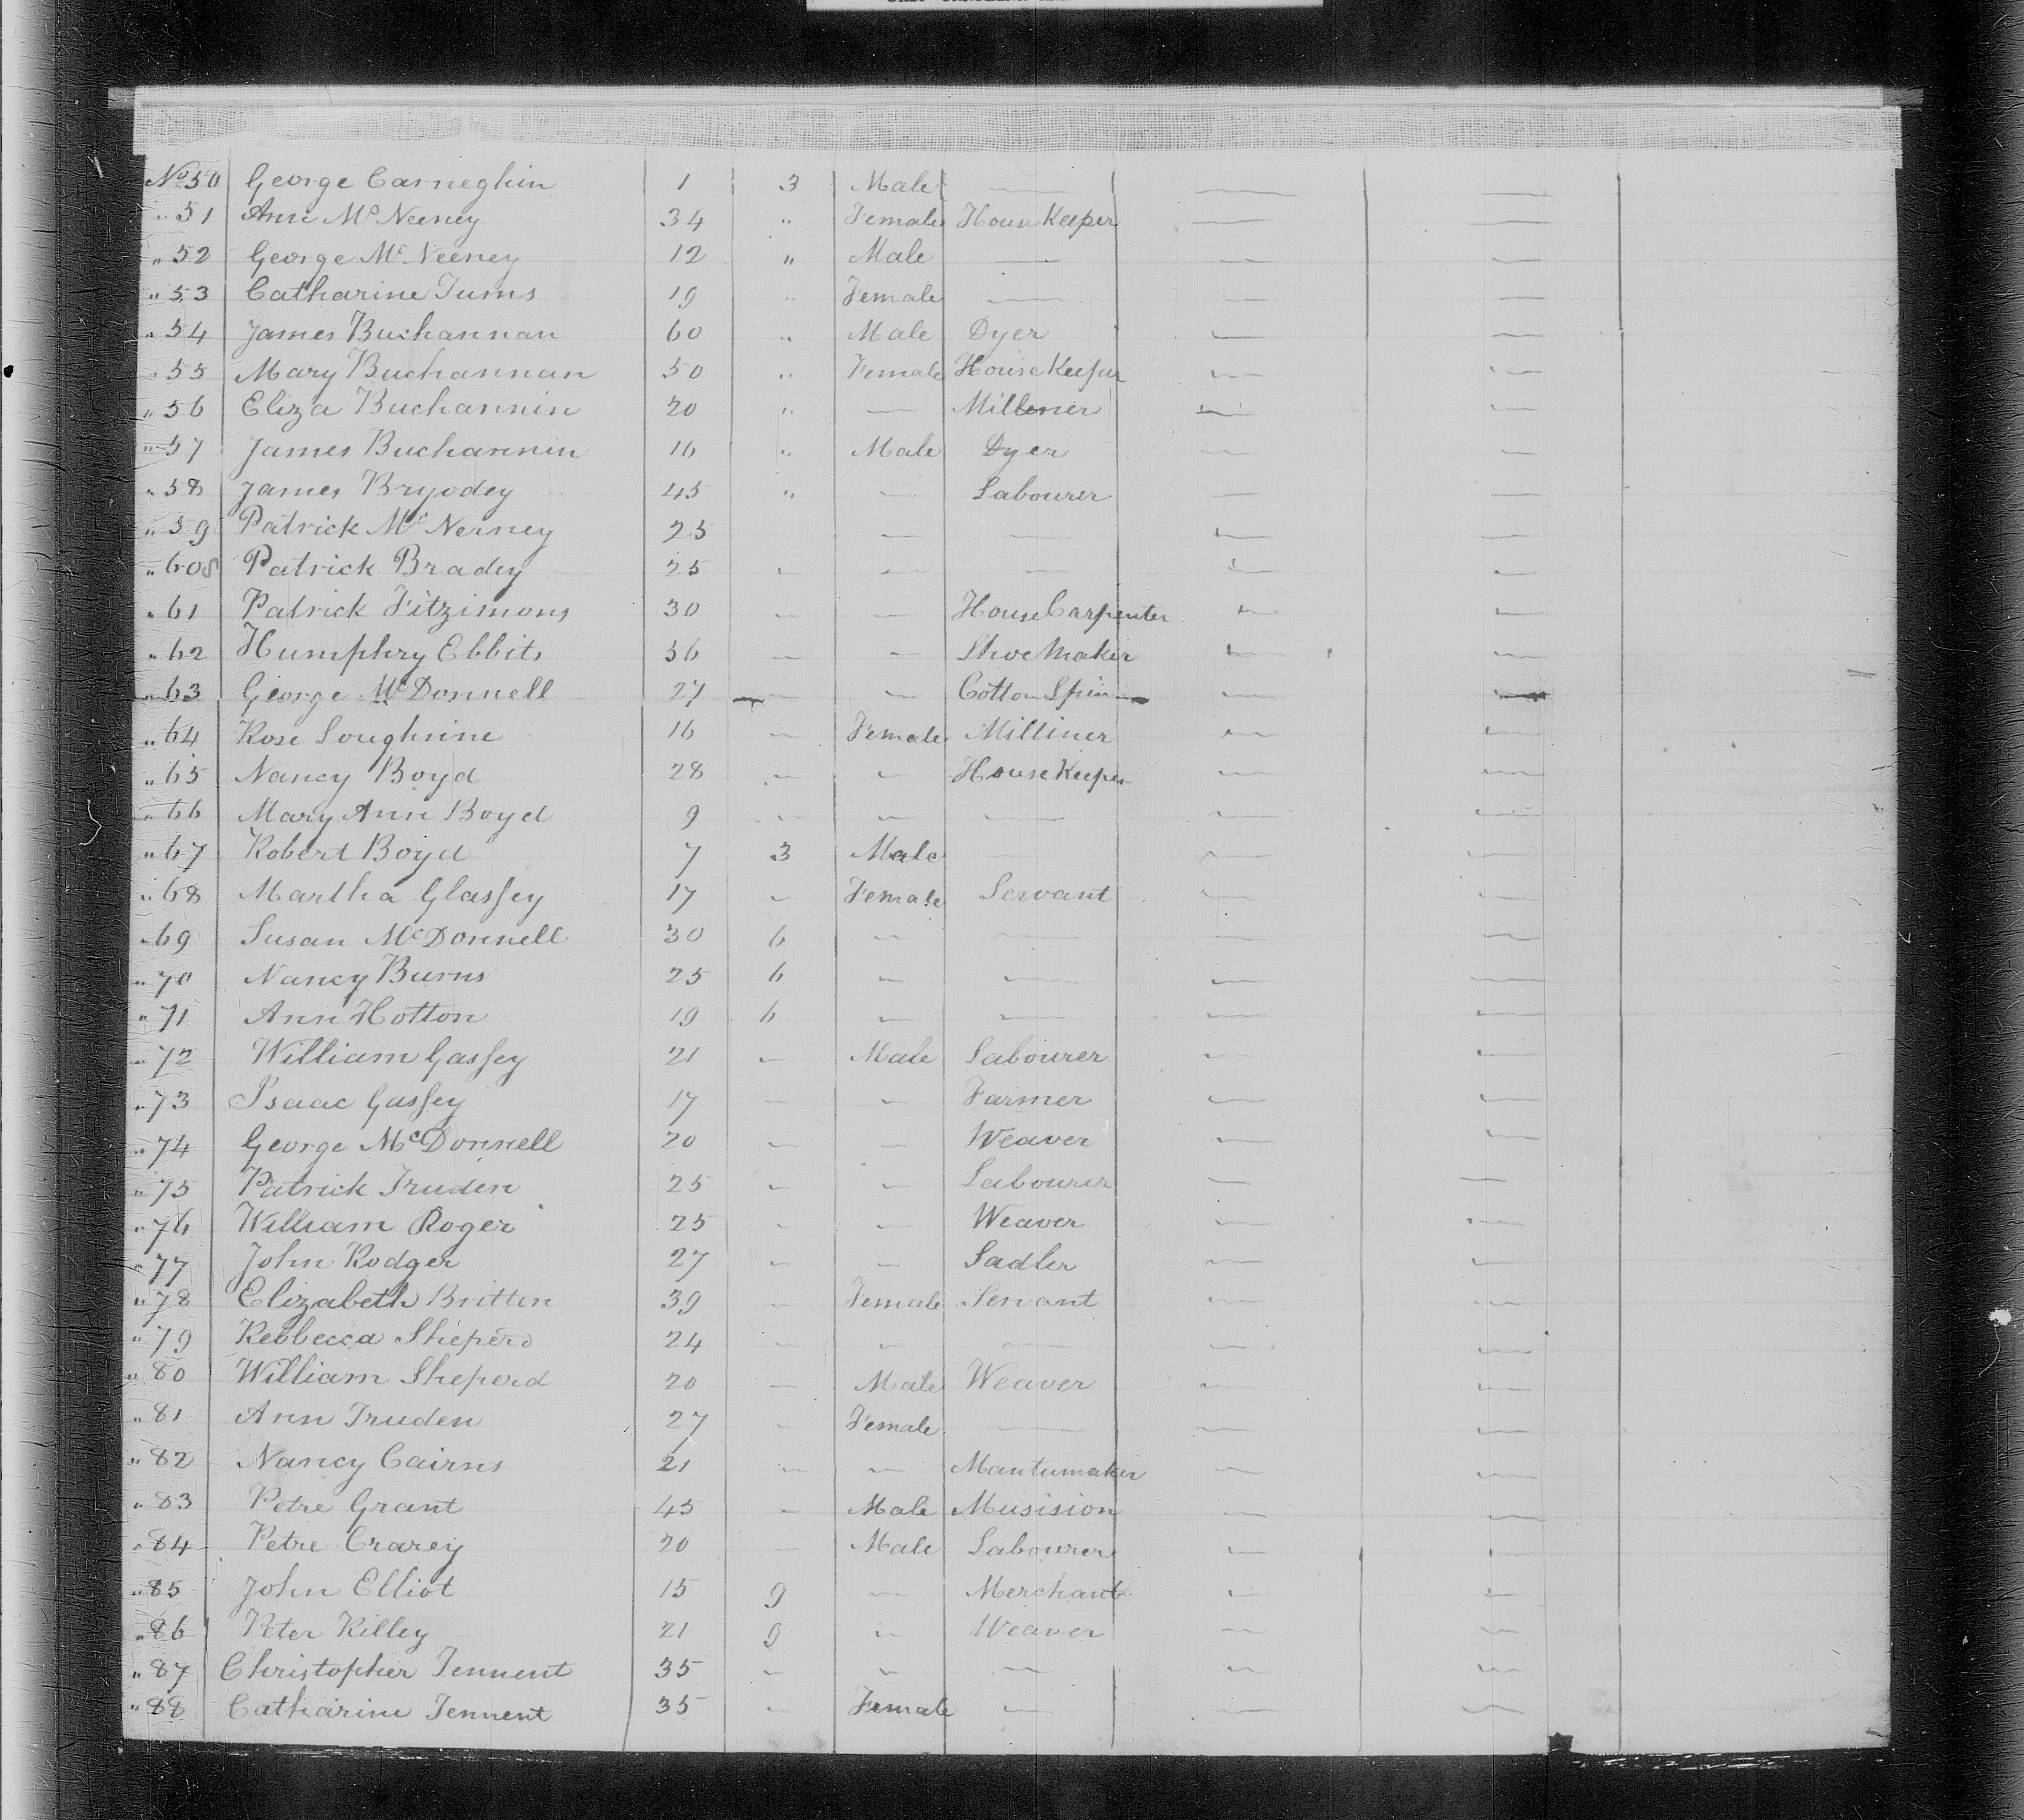 No 50 George Carneghin 1 3 Male — — —
" 51 Ann McNeeney 34 " Female House Keeper — —
" 52 George McNeeney 12 " Male — — —
" 53 Catharine Tums 19 " Female — — —
" 54 James Buchannan 60 " Male Dyer — —
" 55 Mary Buchannan 50 " Female House Keeper — —
" 56 Eliza Buchannin 20 " — Millener — —
" 57 James Buchannin 16 " Male Dyer — —
" 58 James Bryodey 45 " — Labourer — —
" 59 Patrick McNerney 25 — — — —
" 60 Patrick Bradey 25 — — — — —
" 61 Patrick Fitzimons 30 — — House Carpenter — —
" 62 Humphry Ebbits 36 — — Shoe Maker — —
" 63 George McDonnell 27 — — Cotton Spin — —
" 64 Rose Loughnine 16 — Female Milliner — —
" 65 Nancy Boyd 28 — — House Keeper — —
" 66 Mary Ann Boyd 9 — — — — —
" 67 Robert Boyd 7 3 Male — — —
" 68 Martha Glassey 17 — Female Servant — —
" 69 Susan McDonnell 30 6 — — — —
" 70 Nancy Burns 25 6 — — — —
" 71 Ann Hotton 19 6 — — — —
" 72 William Gassey 21 — Male Labourer — —
" 73 Isaac Gassey 17 — — Farmer — —
" 74 George McDonnell 20 — — Weaver — —
" 75 Patrick Truden 25 — — Labourer — —
" 76 William Roger 25 — — Weaver — —
" 77 John Rodger 27 — — Sadler — —
" 78 Elizabeth Britten 39 — Female Servant — —
" 79 Rebbecca Sheperd 24 — — — — —
" 80 William Sheperd 20 — Male Weaver — —
" 81 Ann Truden 27 — Female — — —
" 82 Nancy Cairns 21 — — Mantumaker — —
" 83 Petre Grant 45 — Male Musision — —
" 84 Petre Crarey 20 — Male Labourer — —
" 85 John Elliot 15 9 — Merchant — —
" 86 Peter Killey 21 9 — Weaver — —
" 87 Christopher Tennent 35 — — — — —
" 88 Catharine Tennent 35 — Female — — —